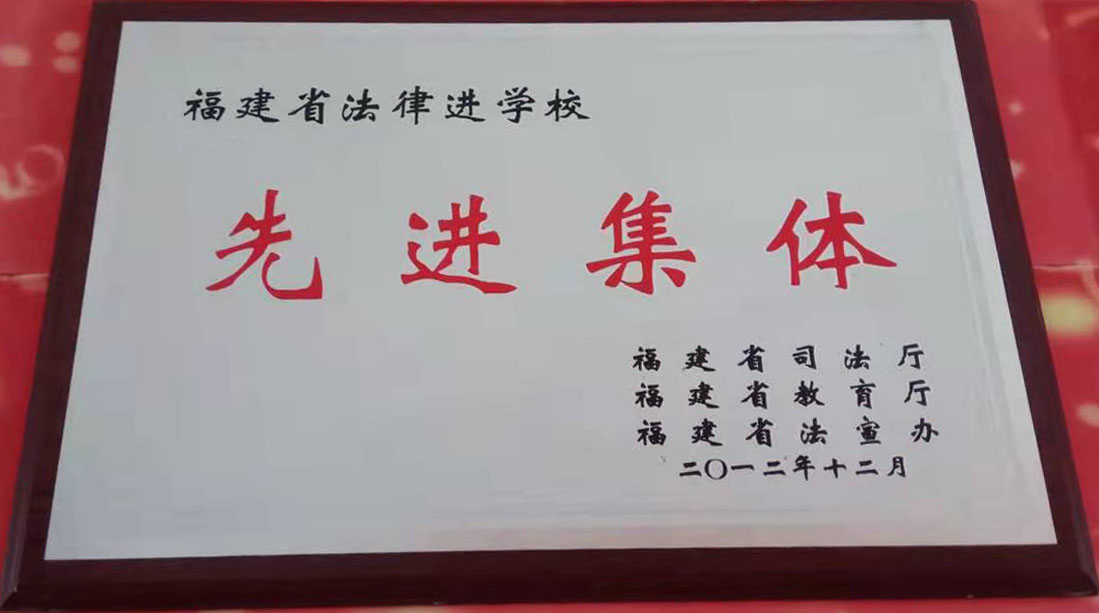 福建省法律进学校
先进集体
福建省司法厅
福建省教育厅
福建省法宣办
二〇一二年十二月